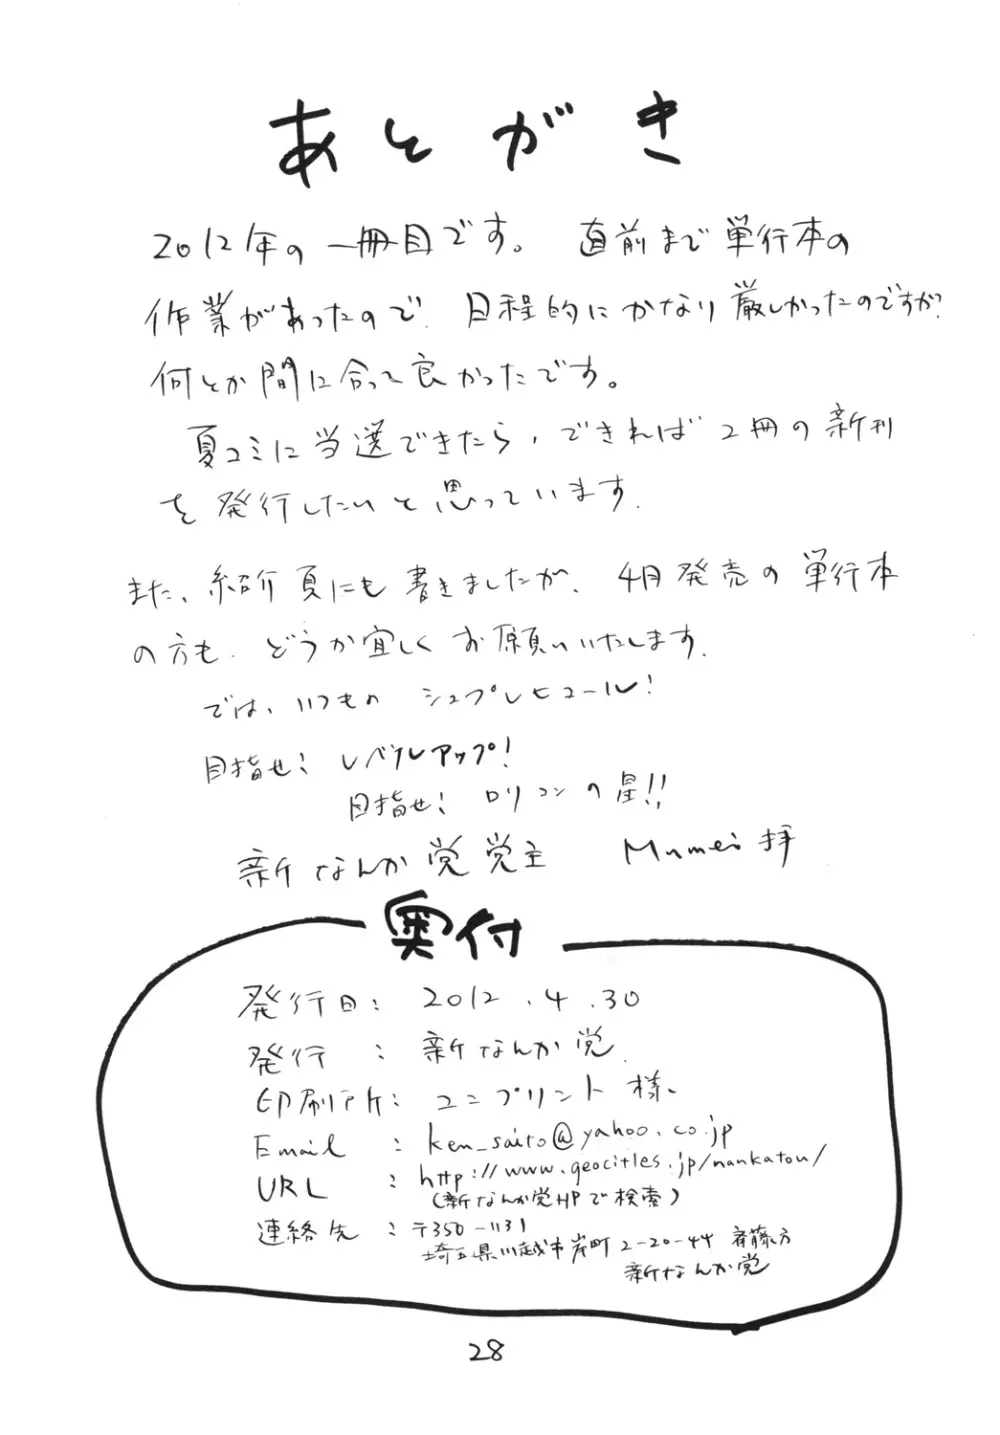 あとがき
2012年の一冊目です。 直前まで単行本の
作業があったので、日程的にかなり厳しかったのですが、
何とか間に合って良かったです。
夏コミに当選できたら、できれば2冊の新刊
を発行したいと思っています。
また、紹介頁にも書きましたが、4月発売の単行本
の方も、どうか宜しくお願いいたします。
では、いつものシュプレヒコール!
目指せ!レベルアップ!
目指せ!ロリコンの星!!
新なんか党党主 Mumei拝
奥付
発行日: 2012.4.30
発行 : 新なんか党
印刷所: ユニプリント様
Email : ken_saito@yahoo.co.jp
URL : http://www.geocities.jp/nankatou/
(新なんか党HPで検索)
連絡先 : 〒350-1131
埼玉県川越市岸町2-20-44 斉藤方
新なんか党
28